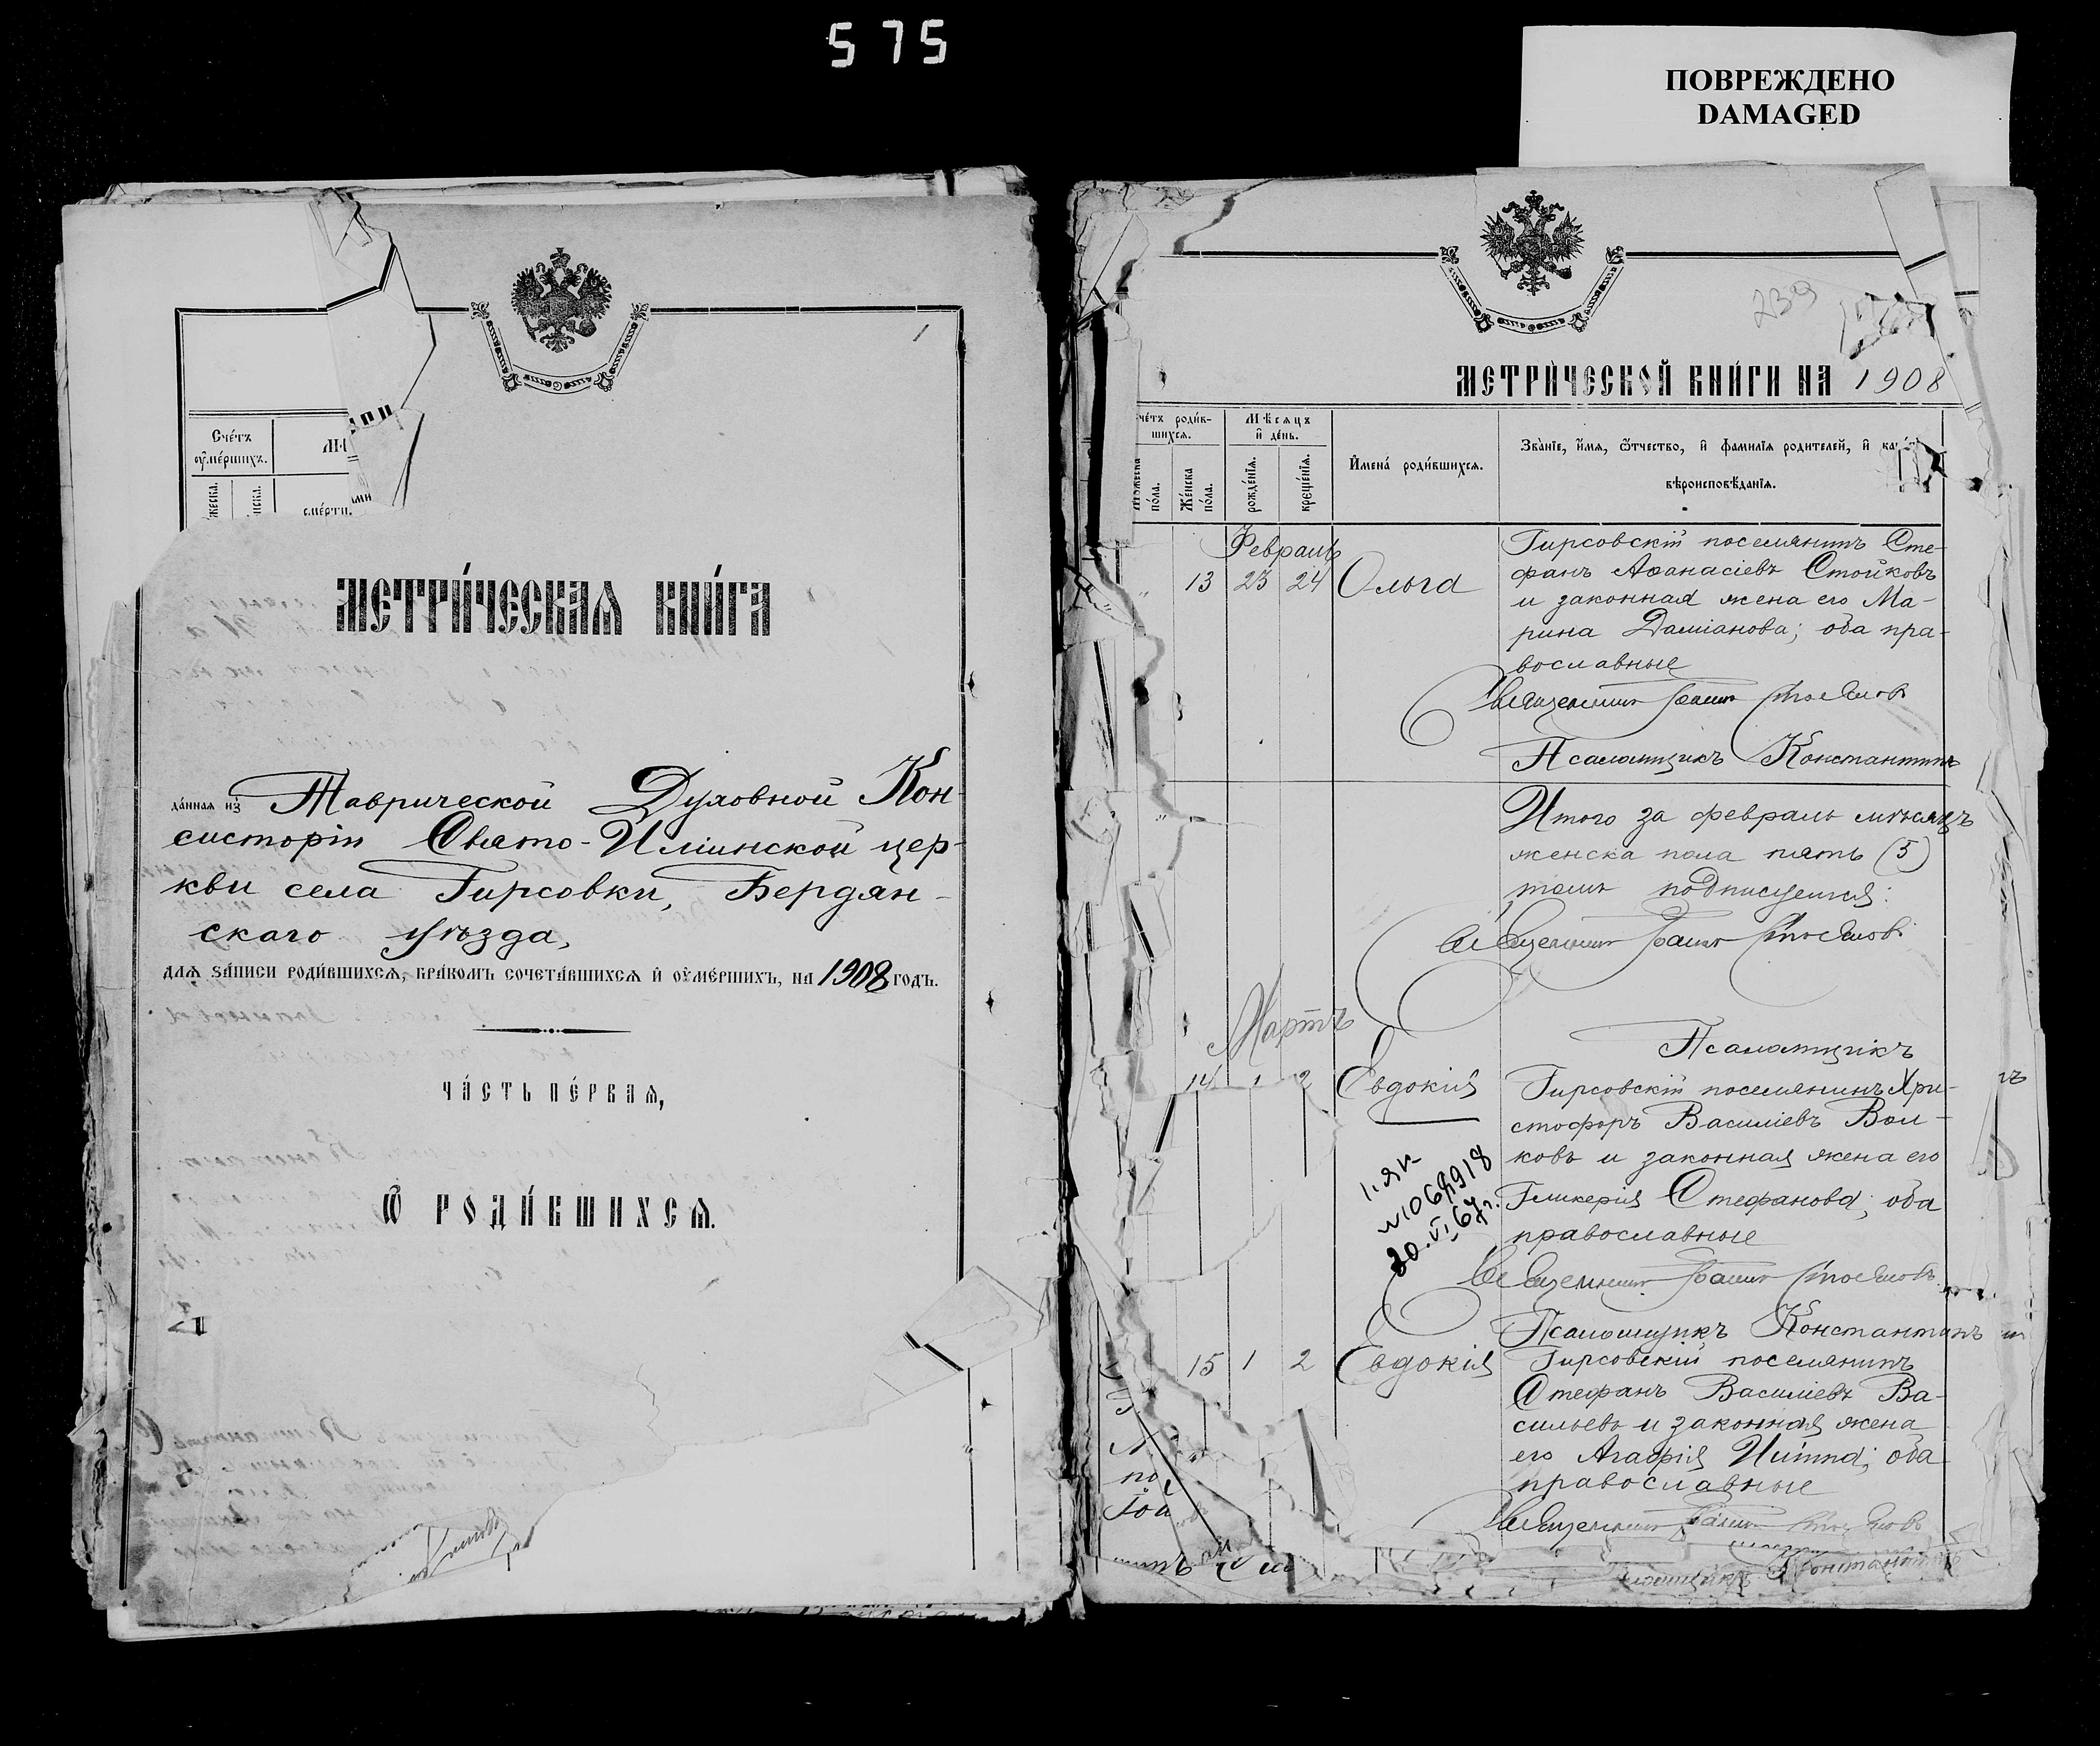 575
ПОВРЕЖДЕНО
DAMAGED
1
Счétъ
оумéршихъ.
МЕТРИ́ЧЕСКАѦ КНИ́ГА
дáнная из Таврической Духовной Кон-
систоріи Свято-Иліинской цер-
кви села Гирсовки, Бердян-
скаго уѣзда,
длѧ зáписи роди́вшихсѧ, брáкомъ сочетáвшихсѧ и оумéршихъ, на 1908 годъ.
ЧА́СТЬ ПЕ́РВАѦ,
Ѽ РОДИ́ВШИХСѦ.
239
МЕТРИ́ЧЕСКОЙ КНИ́ГИ НА 1908
роди́в-
шихсѧ.
Мѣсѧцъ
и дéнь.
пóла.
Жéнска
пóла.
рождéнїѧ.
крещéнїѧ.
Именá роди́вшихсѧ.
Звáнїе, и́мѧ, ѻ́тчество, и фамилїѧ родителей, и
вѣроисповѣ́данїѧ.
Февраль
13 23 24 Ольга
Гирсовскій поселянинъ Сте-
фанъ Аѳанасіевъ Стойковъ
и законная жена его Ма-
рина Даміанова; оба пра-
вославные
Священникъ Іоаннъ
Псаломщикъ Константинъ
Итого за февраль мѣсяцъ
женска пола пять (5)
подписуемся:
Священникъ Іоаннъ
Псаломщикъ
Мартъ
14 1 2 Евдокія
Гирсовскій поселянинъ Хри-
стофоръ Василіевъ Вол-
ковъ и законная жена его
Гликерія Стефанова; оба
православные
20.VI.67г.
Священникъ Іоаннъ
Псаломщикъ Константинъ
15 1 2 Евдокія
Гирсовскій поселянинъ
Стефанъ Василіевъ Ва-
сильевъ и законная жена
его Агафія Ильина; оба
православные
Священникъ Іоаннъ